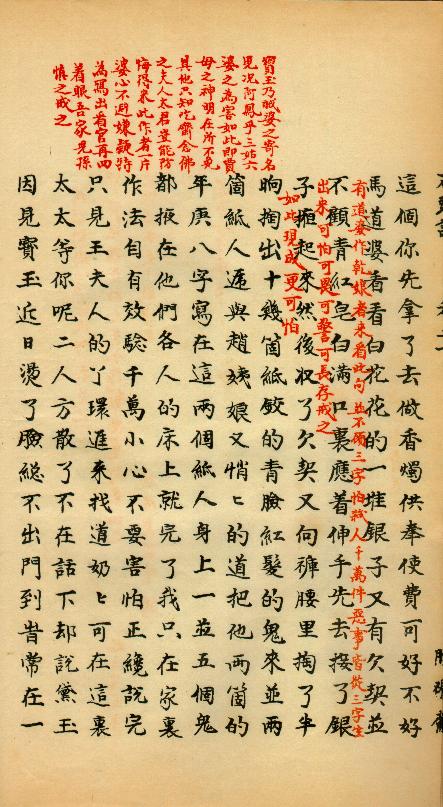 寶玉乃賊婆之寄名
兒况阿鳳乎三姑六
婆之為害如此即賈
母之神明在所不免
其他只知吃齋念佛
之夫人太君豈能防
悔得來此作者一片
婆心不避嫌疑特
為寫出看官再四
着眼吾家兒孫
慎之戒之
這個你先拿了去做香燭供奉使費可好不好
馬道婆看看白花花的一堆銀子又有欠契並
有道婆作乾娘者來看此句並不顧三字怕弑人千萬件惡事皆從三字生
不顧青紅皂白滿口裏應着伸手先去接了銀
出來可怕可畏可警可長存戒之
子掖起來然後收了欠契又向褲腰里掏了半
如此現成更可怕
晌掏出十幾箇紙鉸的青臉紅髮的鬼來並兩
箇紙人遞與趙姨娘又悄〻的道把他兩箇的
年庚八字寫在這兩個紙人身上一並五個鬼
都掖在他們各人的床上就完了我只在家裏
作法自有效驗千萬小心不要害怕正纔說完
只見王夫人的丫環進來找道奶〻可在這裏
太太等你呢二人方散了不在話下却說黛玉
因見寶玉近日燙了臉總不出門到昔常在一